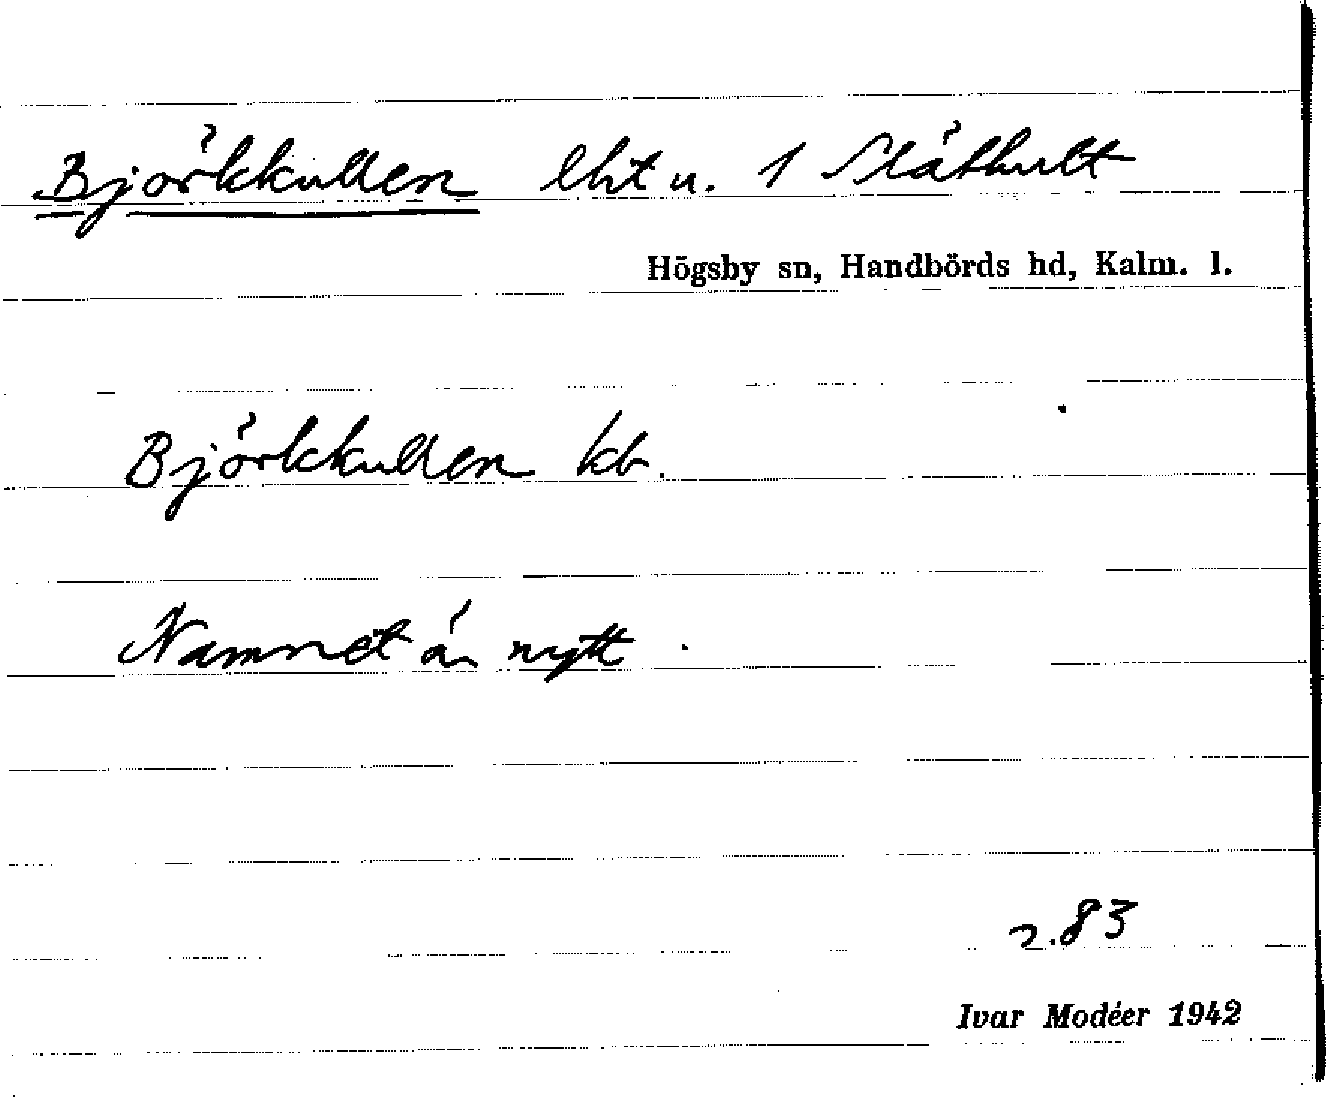 Björkkullen lht u. 1 Slåthult
Högsby sn, Handbörds hd, Kalm. l.
Björkkullen kb.
Namnet är nytt.
s. 83
Ivar Modéer 1942